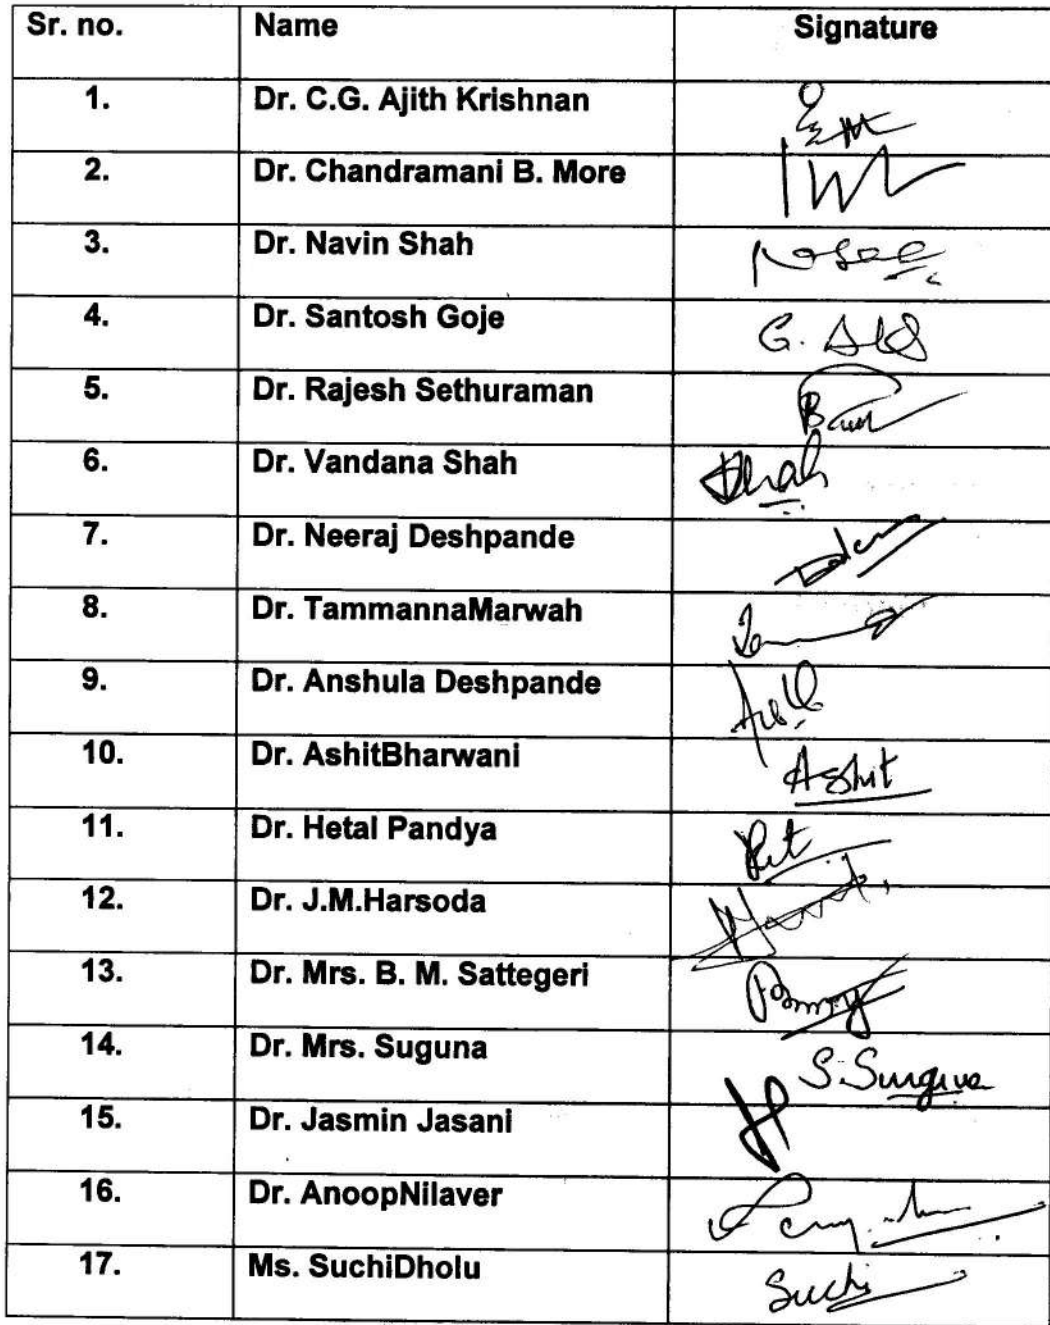 Sr. no. Name Signature
1. Dr. C.G. Ajith Krishnan
2. Dr. Chandramani B. More
3. Dr. Navin Shah
4. Dr. Santosh Goje
5. Dr. Rajesh Sethuraman
6. Dr. Vandana Shah
7. Dr. Neeraj Deshpande
8. Dr. TammannaMarwah
9. Dr. Anshula Deshpande
10. Dr. AshitBharwani Ashit
11. Dr. Hetal Pandya
12. Dr. J.M.Harsoda
13. Dr. Mrs. B. M. Sattegeri
14. Dr. Mrs. Suguna S. Suguna
15. Dr. Jasmin Jasani
16. Dr. AnoopNilaver
17. Ms. SuchiDholu Suchi